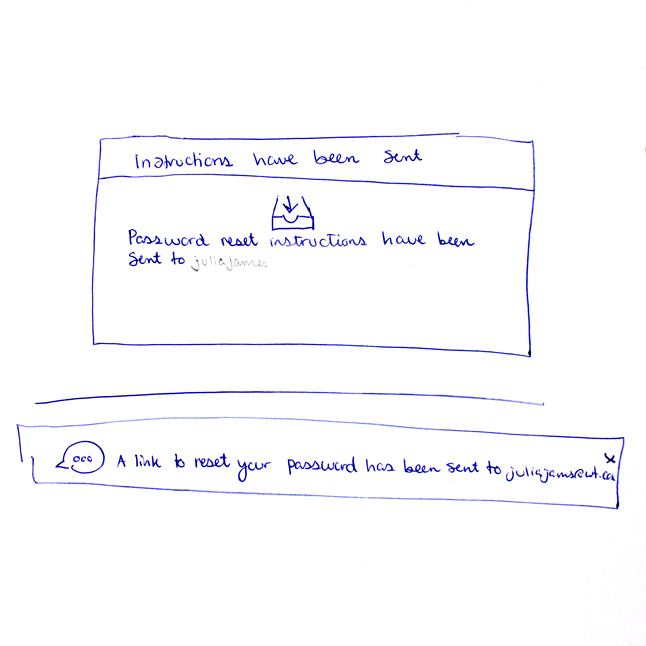 Instructions have been sent
Password reset instructions have been
sent to juliajames
A link to reset your password has been sent to